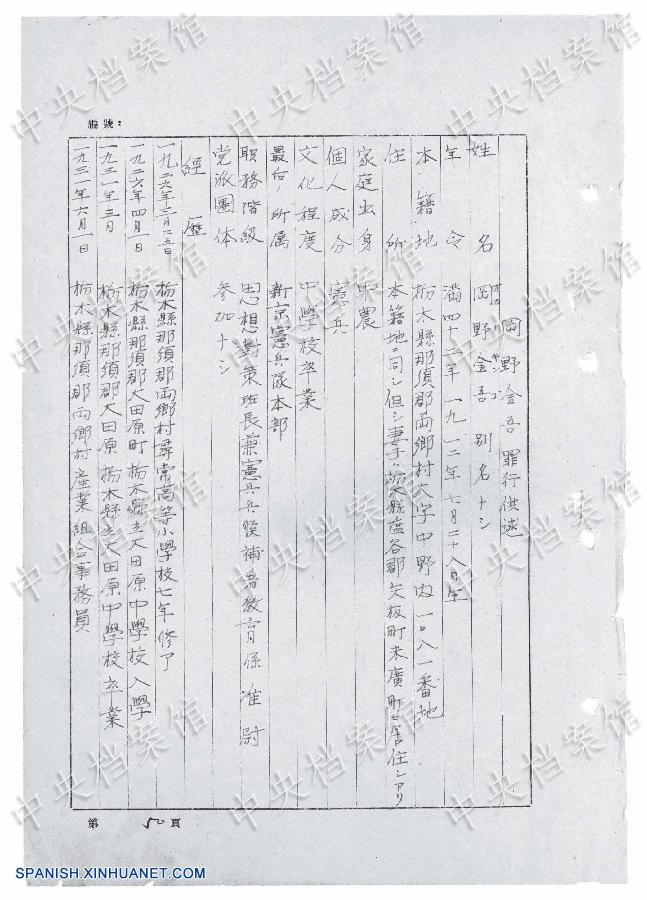 編號：
岡野淦吾 罪行供述
姓名 岡野金吾 別名ナシ
年令 満四十二年 一九一二年七月二十八日生
本籍地 栃木縣那須郡両郷村大字中野内一〇八一番地
住所 本籍地ニ同シ但シ妻子ハ栃木縣塩谷郡矢板町末廣町ニ居住シアリ
家庭出身 中農
個人成分 憲兵
文化程度 中學校卒業
最后ノ所属 新京憲兵隊本部
职務階級 思想對策班長兼憲兵兵候補者教育係 准尉
党派團体 参加ナシ
經歴
一九二六年三月二五日 栃木縣那須郡両郷村尋常高等小學校七年修了
一九二六年四月一日 栃木縣那須郡大田原町栃木縣立大田原中學校入學
一九三一年三月 栃木縣那須郡大田原栃木縣立大田原中學校卒業
一九三一年六月一日 栃木縣那須郡両郷村産業組合事務員
第 50 頁
中央档案馆
SPANISH.XINHUANET.COM